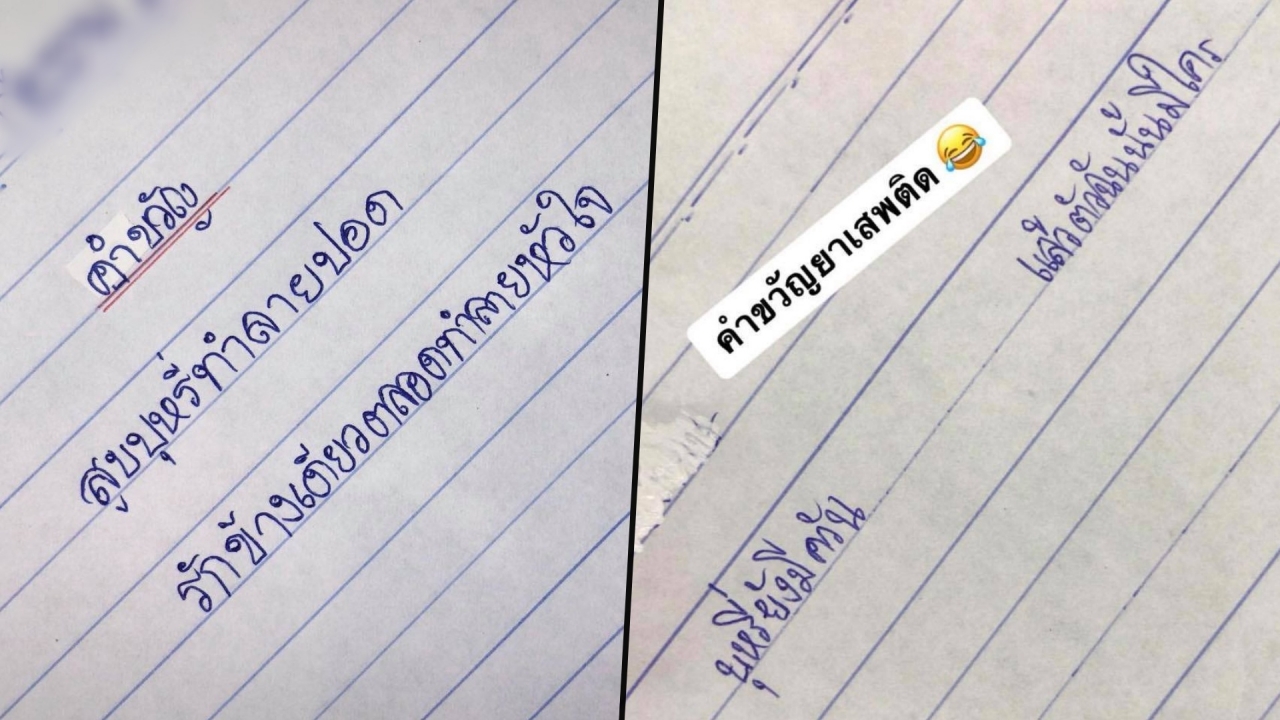 คำขวัญ
สูบบุหรี่ทำลายปอด
รักข้างเดียวตลอดทำลายหัวใจ
คำขวัญยาเสพติด 😂
บุหรี่ยังมีควัน
แล้วตัวฉันนั้นมีใคร